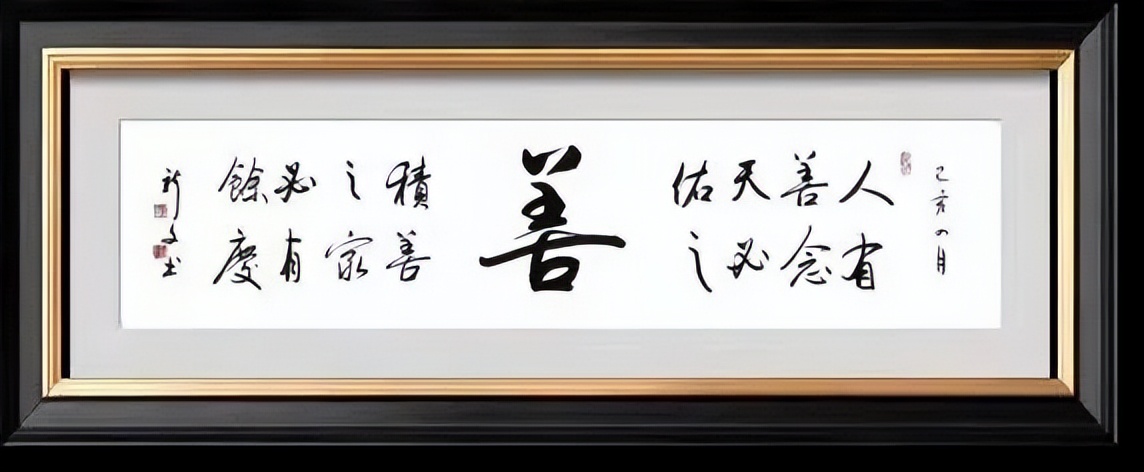 己亥四月
人有
善念
天必
佑之
善
積善
之家
必有
餘慶
新文书